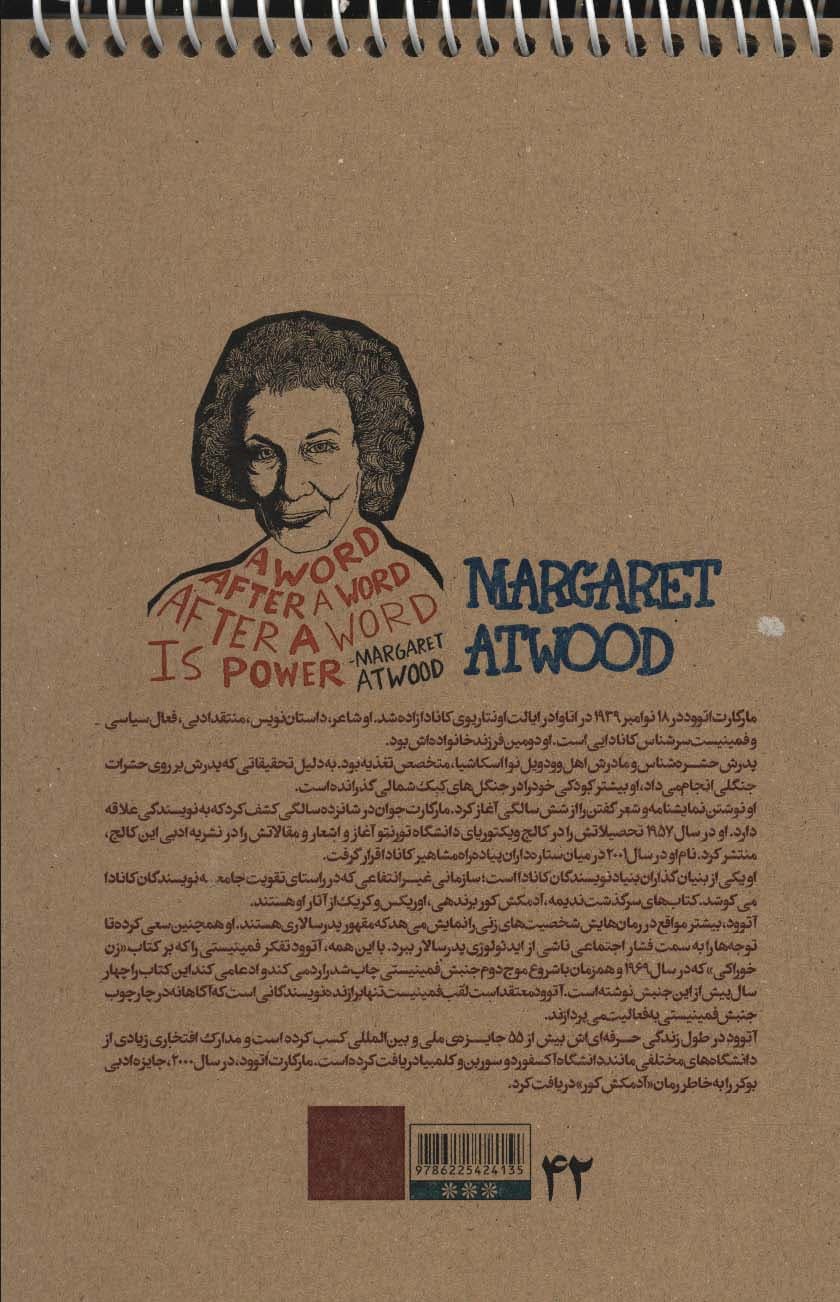 A WORD
AFTER A WORD
AFTER A WORD
IS POWER
-MARGARET
ATWOOD
MARGARET
ATWOOD
مارگارت اتوود در ۱۸ نوامبر ۱۹۳۹ در اتاوا در ایالت اونتاریوی کانادا زاده شد. او شاعر، داستان‌نویس، منتقد ادبی، فعال سیاسی
و فمینیست سرشناس کانادایی است. او دومین فرزند خانواده‌اش بود.
پدرش حشره‌شناس و مادرش اهل وودویل نوا اسکاشیا، متخصص تغذیه بود. به دلیل تحقیقاتی که پدرش بر روی حشرات
جنگلی انجام می‌داد، او بیشتر کودکی خود را در جنگل‌های کبک شمالی گذرانده است.
او نوشتن نمایشنامه و شعر گفتن را از شش سالگی آغاز کرد. مارگارت جوان در شانزده سالگی کشف کرد که به نویسندگی علاقه
دارد. او در سال ۱۹۵۷ تحصیلاتش را در کالج ویکتوریای دانشگاه تورنتو آغاز و اشعار و مقالاتش را در نشریه ادبی این کالج،
منتشر کرد. نام او در سال ۲۰۰۱ در میان ستاره‌داران پیاده‌راه مشاهیر کانادا قرار گرفت.
او یکی از بنیان گذاران بنیاد نویسندگان کانادا است؛ سازمانی غیرانتفاعی که در راستای تقویت جامعه نویسندگان کانادا
می کوشد. کتاب‌های سرگذشت ندیمه، آدمکش کور، برندهی، اوریکس و کریک از آثار او هستند.
آتوود، بیشتر مواقع در رمان‌هایش شخصیت‌های زنی را نمایش می‌هد که مقهور پدرسالاری هستند. او همچنین سعی کرده تا
توجه‌ها را به سمت فشار اجتماعی ناشی از ایدئولوژی پدرسالار ببرد. با این همه، آتوود تفکر فمینیستی را که بر کتاب «زن
خوراکی» که در سال ۱۹۶۹ و همزمان با شروع موج دوم جنبش فمینیستی چاپ شد را رد می کند و ادعا می کند این کتاب را چهار
سال پیش از این جنبش نوشته است. آتوود معتقد است لقب فمینیست تنها برازنده نویسندگانی است که آگاهانه در چارچوب
جنبش فمینیستی به فعالیت می پردازند.
آتوود در طول زندگی حرفه‌ای‌اش بیش از ۵۵ جایزه‌ی ملی و بین‌المللی کسب کرده است و مدارک افتخاری زیادی از
دانشگاه‌های مختلفی مانند دانشگاه آکسفورد و سوربن و کلمبیا دریافت کرده است. مارگارت اتوود، در سال ۲۰۰۰، جایزه ادبی
بوکر را به خاطر رمان «آدمکش کور» دریافت کرد.
9786225424135
۴۲